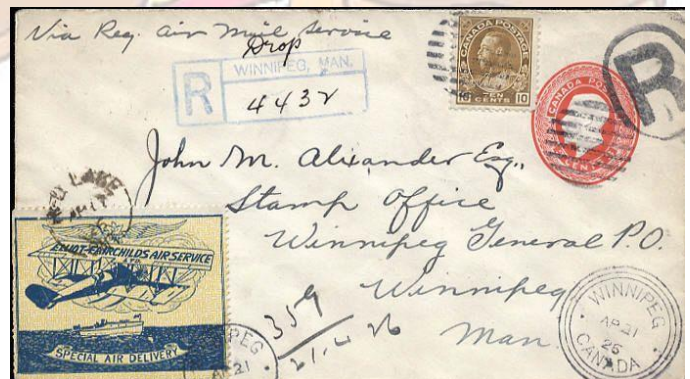 Via Reg. Air Mail Service
Drop
WINNIPEG, MAN.
R
4432
CANADA POSTAGE
10 TEN CENTS 10
CANADA
R
John M. Alexander Esq.,
Stamp Office
Winnipeg General P.O.
Winnipeg
Man.
LAKE
ELLIOT-FAIRCHILDS AIR SERVICE
SPECIAL AIR DELIVERY
357
21.4.26
WINNIPEG
AP 21
26
CANADA